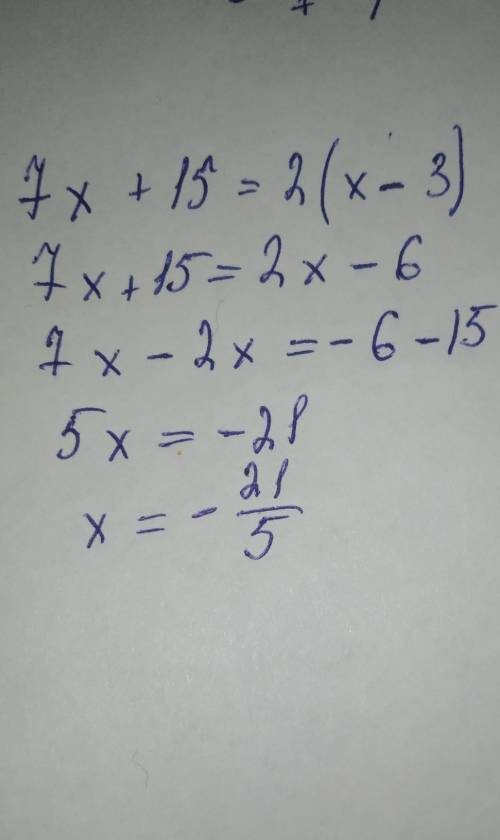 7x + 15 = 2(x - 3)
7x + 15 = 2x - 6
7x - 2x = - 6 - 15
5x = - 21
x = - 21/5